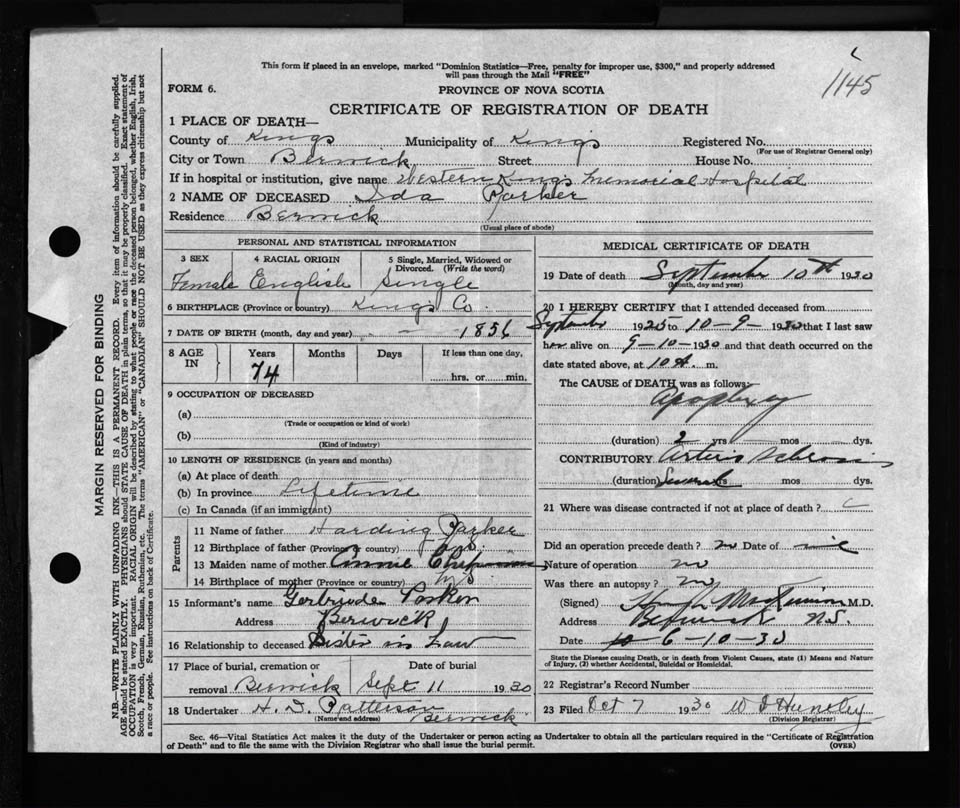 This form if placed in an envelope, marked "Dominion Statistics—Free, penalty for improper use, $300," and properly addressed
will pass through the Mail "FREE"
1145
FORM 6.
PROVINCE OF NOVA SCOTIA
CERTIFICATE OF REGISTRATION OF DEATH
1 PLACE OF DEATH—
County of Kings Municipality of Kings Registered No.
(For use of Registrar General only)
City or Town Berwick Street House No.
If in hospital or institution, give name Western Kings Memorial Hospital
2 NAME OF DECEASED Ida Parker
Residence Berwick
(Usual place of abode)
PERSONAL AND STATISTICAL INFORMATION
3 SEX 4 RACIAL ORIGIN 5 Single, Married, Widowed or
Divorced. (Write the word)
Female English Single
6 BIRTHPLACE (Province or country) Kings Co.
7 DATE OF BIRTH (month, day and year) - - 1856
8 AGE IN Years Months Days If less than one day,
74 hrs. or min.
9 OCCUPATION OF DECEASED
(a)
(Trade or occupation or kind of work)
(b)
(Kind of industry)
10 LENGTH OF RESIDENCE (in years and months)
(a) At place of death
(b) In province Lifetime
(c) In Canada (if an immigrant)
Parents
11 Name of father Harding Parker
12 Birthplace of father (Province or country) N.S.
13 Maiden name of mother
14 Birthplace of mother (Province or country) N.S.
15 Informant's name Gertrude Parker
Address Berwick
16 Relationship to deceased Sister in Law
17 Place of burial, cremation or Date of burial
removal Berwick Sept 11 1930
18 Undertaker H. D. Patterson
(Name and address) Berwick
MEDICAL CERTIFICATE OF DEATH
19 Date of death September 10th 1930
(Month, day and year)
20 I HEREBY CERTIFY that I attended deceased from
September 1925 to 10-9-1930 that I last saw
her alive on 9-10-1930 and that death occurred on the
date stated above, at 10 A. m.
The CAUSE of DEATH was as follows:
Apoplexy
(duration) 2 yrs mos dys.
CONTRIBUTORY Arterio Sclerosis
(duration) Several yrs mos dys.
21 Where was disease contracted if not at place of death?
Did an operation precede death? no Date of
Nature of operation no
Was there an autopsy? no
(Signed) Hugh M.D.
Address Berwick N.S.
Date 6-10-30
State the Disease causing Death, or in death from Violent Causes, state (1) Means and Nature
of Injury, (2) whether Accidental, Suicidal or Homicidal.
22 Registrar's Record Number
23 Filed Oct 7 1930
(Division Registrar)
Sec. 46—Vital Statistics Act makes it the duty of the Undertaker or person acting as Undertaker to obtain all the particulars required in the "Certificate of Registration
of Death" and to file the same with the Division Registrar who shall issue the burial permit.
(OVER)
MARGIN RESERVED FOR BINDING
N.B.—WRITE PLAINLY WITH UNFADING INK—THIS IS A PERMANENT RECORD. Every item of information should be carefully supplied.
AGE should be stated EXACTLY. PHYSICIANS should STATE CAUSE OF DEATH in plain terms, so that it may be properly classified. Exact statement of
OCCUPATION is very important. RACIAL ORIGIN will be described by stating to what people or race the deceased person belonged, whether English, Irish,
Scotch, French, German, Russian, Ruthenian, etc. The terms "AMERICAN" or "CANADIAN" SHOULD NOT BE USED as they express citizenship but not
a race or people. See instructions on back of Certificate.